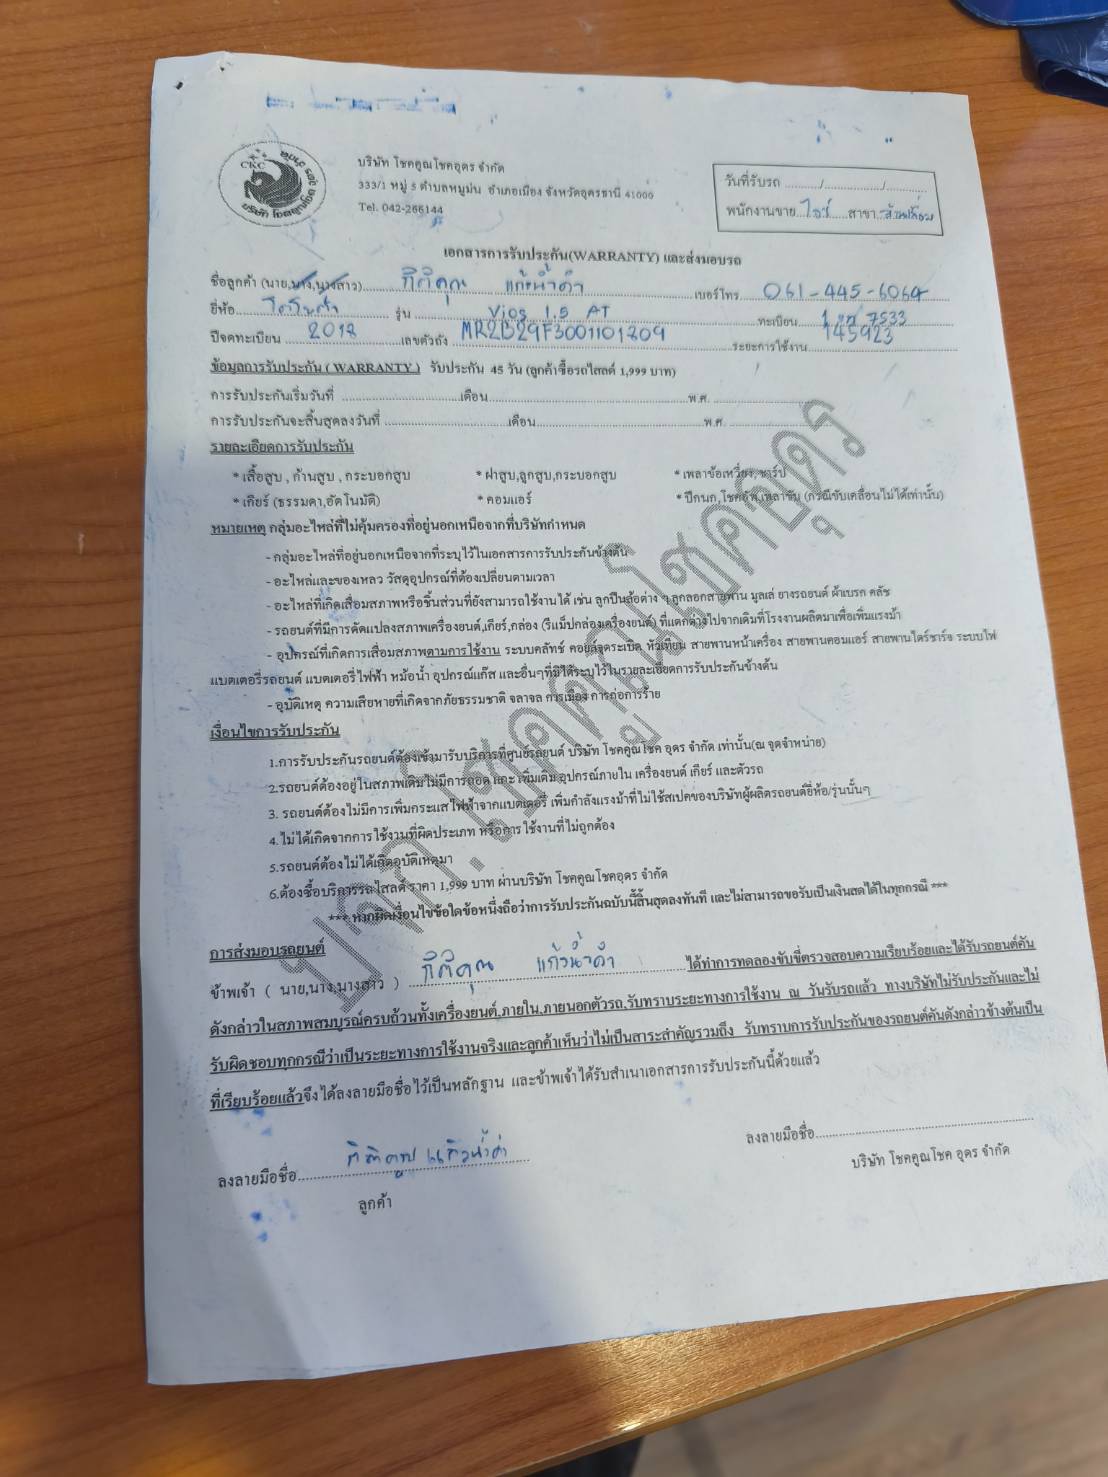 CKC
บริษัท โชคคูณโชคอุดร จำกัด
333/1 หมู่ 5 ตำบลหมูม่น อำเภอเมือง จังหวัดอุดรธานี 41000
Tel. 042-266144
วันที่รับรถ ........./............../............
พนักงานขาย ไอซ์ สาขา
เอกสารการรับประกัน(WARRANTY) และส่งมอบรถ
ชื่อลูกค้า (นาย,นาง,นางสาว) กิติคุณ แก้วน้ำคำ เบอร์โทร 061-445-6064
ยี่ห้อ โตโยต้า รุ่น Vios 1.5 AT ทะเบียน 7533
ปีจดทะเบียน 2018 เลขตัวถัง MR2B29F3001101809 ระยะการใช้งาน 145923
ข้อมูลการรับประกัน ( WARRANTY ) รับประกัน 45 วัน (ลูกค้าซื้อรถไสลด์ 1,999 บาท)
การรับประกันเริ่มวันที่ ..............................เดือน..................................................พ.ศ. ......................
การรับประกันจะสิ้นสุดลงวันที่ ..............................เดือน..........................................พ.ศ. ......................
รายละเอียดการรับประกัน
* เสื้อสูบ , ก้านสูบ , กระบอกสูบ * ฝาสูบ,ลูกสูบ,กระบอกสูบ * เพลาข้อเหวี่ยง,ชาร์ป
* เกียร์ (ธรรมดา,อัตโนมัติ) * คอมแอร์ * ปีกนก,โชคอัพ,เพลาขับ (กรณีขับเคลื่อนไม่ได้เท่านั้น)
หมายเหตุ กลุ่มอะไหล่ที่ไม่คุ้มครองที่อยู่นอกเหนือจากที่บริษัทกำหนด
- กลุ่มอะไหล่ที่อยู่นอกเหนือจากที่ระบุไว้ในเอกสารการรับประกันข้างต้น
- อะไหล่และของเหลว วัสดุอุปกรณ์ที่ต้องเปลี่ยนตามเวลา
- อะไหล่ที่เกิดเสื่อมสภาพหรือชิ้นส่วนที่ยังสามารถใช้งานได้ เช่น ลูกปืนล้อต่าง ๆ ลูกลอกสายพาน มูลเล่ ยางรถยนต์ ผ้าเบรก คลัช
- รถยนต์ที่มีการดัดแปลงสภาพเครื่องยนต์,เกียร์,กล่อง (รีแม็ปกล่องเครื่องยนต์) ที่แตกต่างไปจากเดิมที่โรงงานผลิตมาเพื่อเพิ่มแรงม้า
- อุปกรณ์ที่เกิดการเสื่อมสภาพตามการใช้งาน ระบบคลัทช์ คอยล์จุดระเบิด หัวเทียน สายพานหน้าเครื่อง สายพานคอมแอร์ สายพานไดร์ชาร์จ ระบบไฟ
แบตเตอรี่รถยนต์ แบตเตอรี่ไฟฟ้า หม้อน้ำ อุปกรณ์แก๊ส และอื่นๆที่มิได้ระบุไว้ในรายละเอียดการรับประกันข้างต้น
- อุบัติเหตุ ความเสียหายที่เกิดจากภัยธรรมชาติ จลาจล การเมือง การก่อการร้าย
เงื่อนไขการรับประกัน
1.การรับประกันรถยนต์ต้องเข้ามารับบริการที่ศูนย์รถยนต์ บริษัท โชคคูณโชค อุดร จำกัด เท่านั้น(ณ จุดจำหน่าย)
2.รถยนต์ต้องอยู่ในสภาพเดิมไม่มีการถอด แกะ เพิ่มเติม อุปกรณ์ภายใน เครื่องยนต์ เกียร์ และตัวรถ
3. รถยนต์ต้องไม่มีการเพิ่มกระแสไฟฟ้าจากแบตเตอรี่ เพิ่มกำลังแรงม้าที่ไม่ใช้สเปคของบริษัทผู้ผลิตรถยนต์ยี่ห้อ/รุ่นนั้นๆ
4. ไม่ได้เกิดจากการใช้งานที่ผิดประเภท หรือการใช้งานที่ไม่ถูกต้อง
5.รถยนต์ต้องไม่ได้เกิดอุบัติเหตุมา
6.ต้องซื้อบริการรถไสลด์ ราคา 1,999 บาท ผ่านบริษัท โชคคูณโชคอุดร จำกัด
*** หากผิดเงื่อนไขข้อใดข้อหนึ่งถือว่าการรับประกันฉบับนี้สิ้นสุดลงทันที และไม่สามารถขอรับเป็นเงินสดได้ในทุกกรณี ***
การส่งมอบรถยนต์
ข้าพเจ้า ( นาย,นาง,นางสาว ) กิติคุณ แก้วน้ำคำ ได้ทำการทดลองขับขี่ตรวจสอบความเรียบร้อยและได้รับรถยนต์คัน
ดังกล่าวในสภาพสมบูรณ์ครบถ้วนทั้งเครื่องยนต์,ภายใน,ภายนอกตัวรถ,รับทราบระยะทางการใช้งาน ณ วันรับรถแล้ว ทางบริษัทไม่รับประกันและไม่
รับผิดชอบทุกกรณีว่าเป็นระยะทางการใช้งานจริงและลูกค้าเห็นว่าไม่เป็นสาระสำคัญรวมถึง รับทราบการรับประกันของรถยนต์คันดังกล่าวข้างต้นเป็น
ที่เรียบร้อยแล้วจึงได้ลงลายมือชื่อไว้เป็นหลักฐาน และข้าพเจ้าได้รับสำเนาเอกสารการรับประกันนี้ด้วยแล้ว
ลงลายมือชื่อ กิติคุณ แก้วน้ำคำ ลงลายมือชื่อ..................................................
ลูกค้า บริษัท โชคคูณโชค อุดร จำกัด
บจก.โชคคูณโชคอุดร